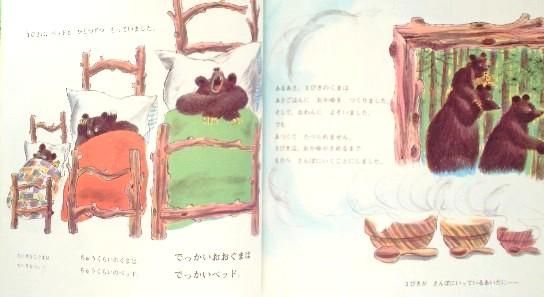 3びきは ベッドを ひとつずつ もっていました。
ちいさなこぐまは
ちいさなベッド。
ちゅうくらいのくまは
ちゅうくらいのベッド。
でっかいおおぐまは
でっかいベッド。
あるあさ、3びきのくまは
あさごはんに おかゆを つくりました。
そして、おわんに よそいました。
でも
あつくて たべられません。
3びきは、おかゆがさめるまで
もりへ さんぽにいくことにしました。
3びきが さんぽにいっているあいだに――